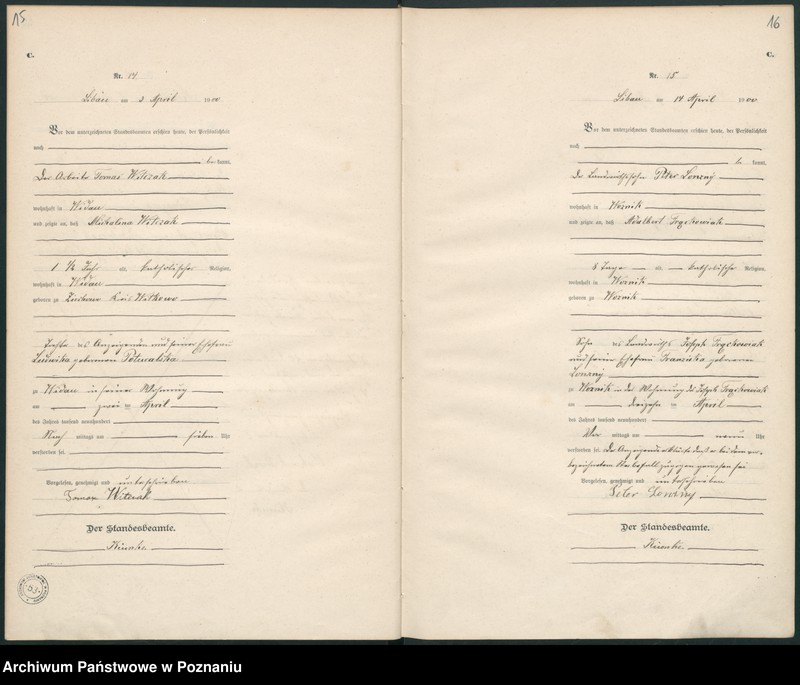 15
C.
Nr. 14
Libau am 3 April 1900
Vor dem unterzeichneten Standesbeamten erschien heute, der Persönlichkeit
nach
be kannt,
Der Arbeiter Tomas Witczak
wohnhaft in Widau
und zeigte an, daß Michalina Witczak
1 1/2 Jahr alt, katholischer Religion,
wohnhaft in Widau
geboren zu Kreis Witkowo
Tochter des Anzeigenden und seiner Ehefrau
Ludwika geborenen
zu Widau in seiner Wohnung
am zwei ten April
des Jahres tausend neunhundert
Nach mittags um sieben Uhr
verstorben sei.
Vorgelesen, genehmigt und unterschrieben
Tomas Witczak
Der Standesbeamte.
16
C.
Nr. 15
Libau am 14 April 1900
Vor dem unterzeichneten Standesbeamten erschien heute, der Persönlichkeit
nach
be kannt,
Der Peter
wohnhaft in Woznik
und zeigte an, daß Adalbert
8 Tage alt, katholischer Religion,
wohnhaft in Woznik
geboren zu Woznik
Sohn des Landwirths Joseph
und seiner Ehefrau Franziska geborenen
zu Woznik in der Wohnung des Joseph
am dreizehn ten April
des Jahres tausend neunhundert
Vor mittags um neun Uhr
verstorben sei. Der Anzeigende erklärte daß er bei dem vor-
bezeichneten Sterbefall zugegen gewesen sei
Vorgelesen, genehmigt und unterschrieben
Peter
Der Standesbeamte.
53
Archiwum Państwowe w Poznaniu